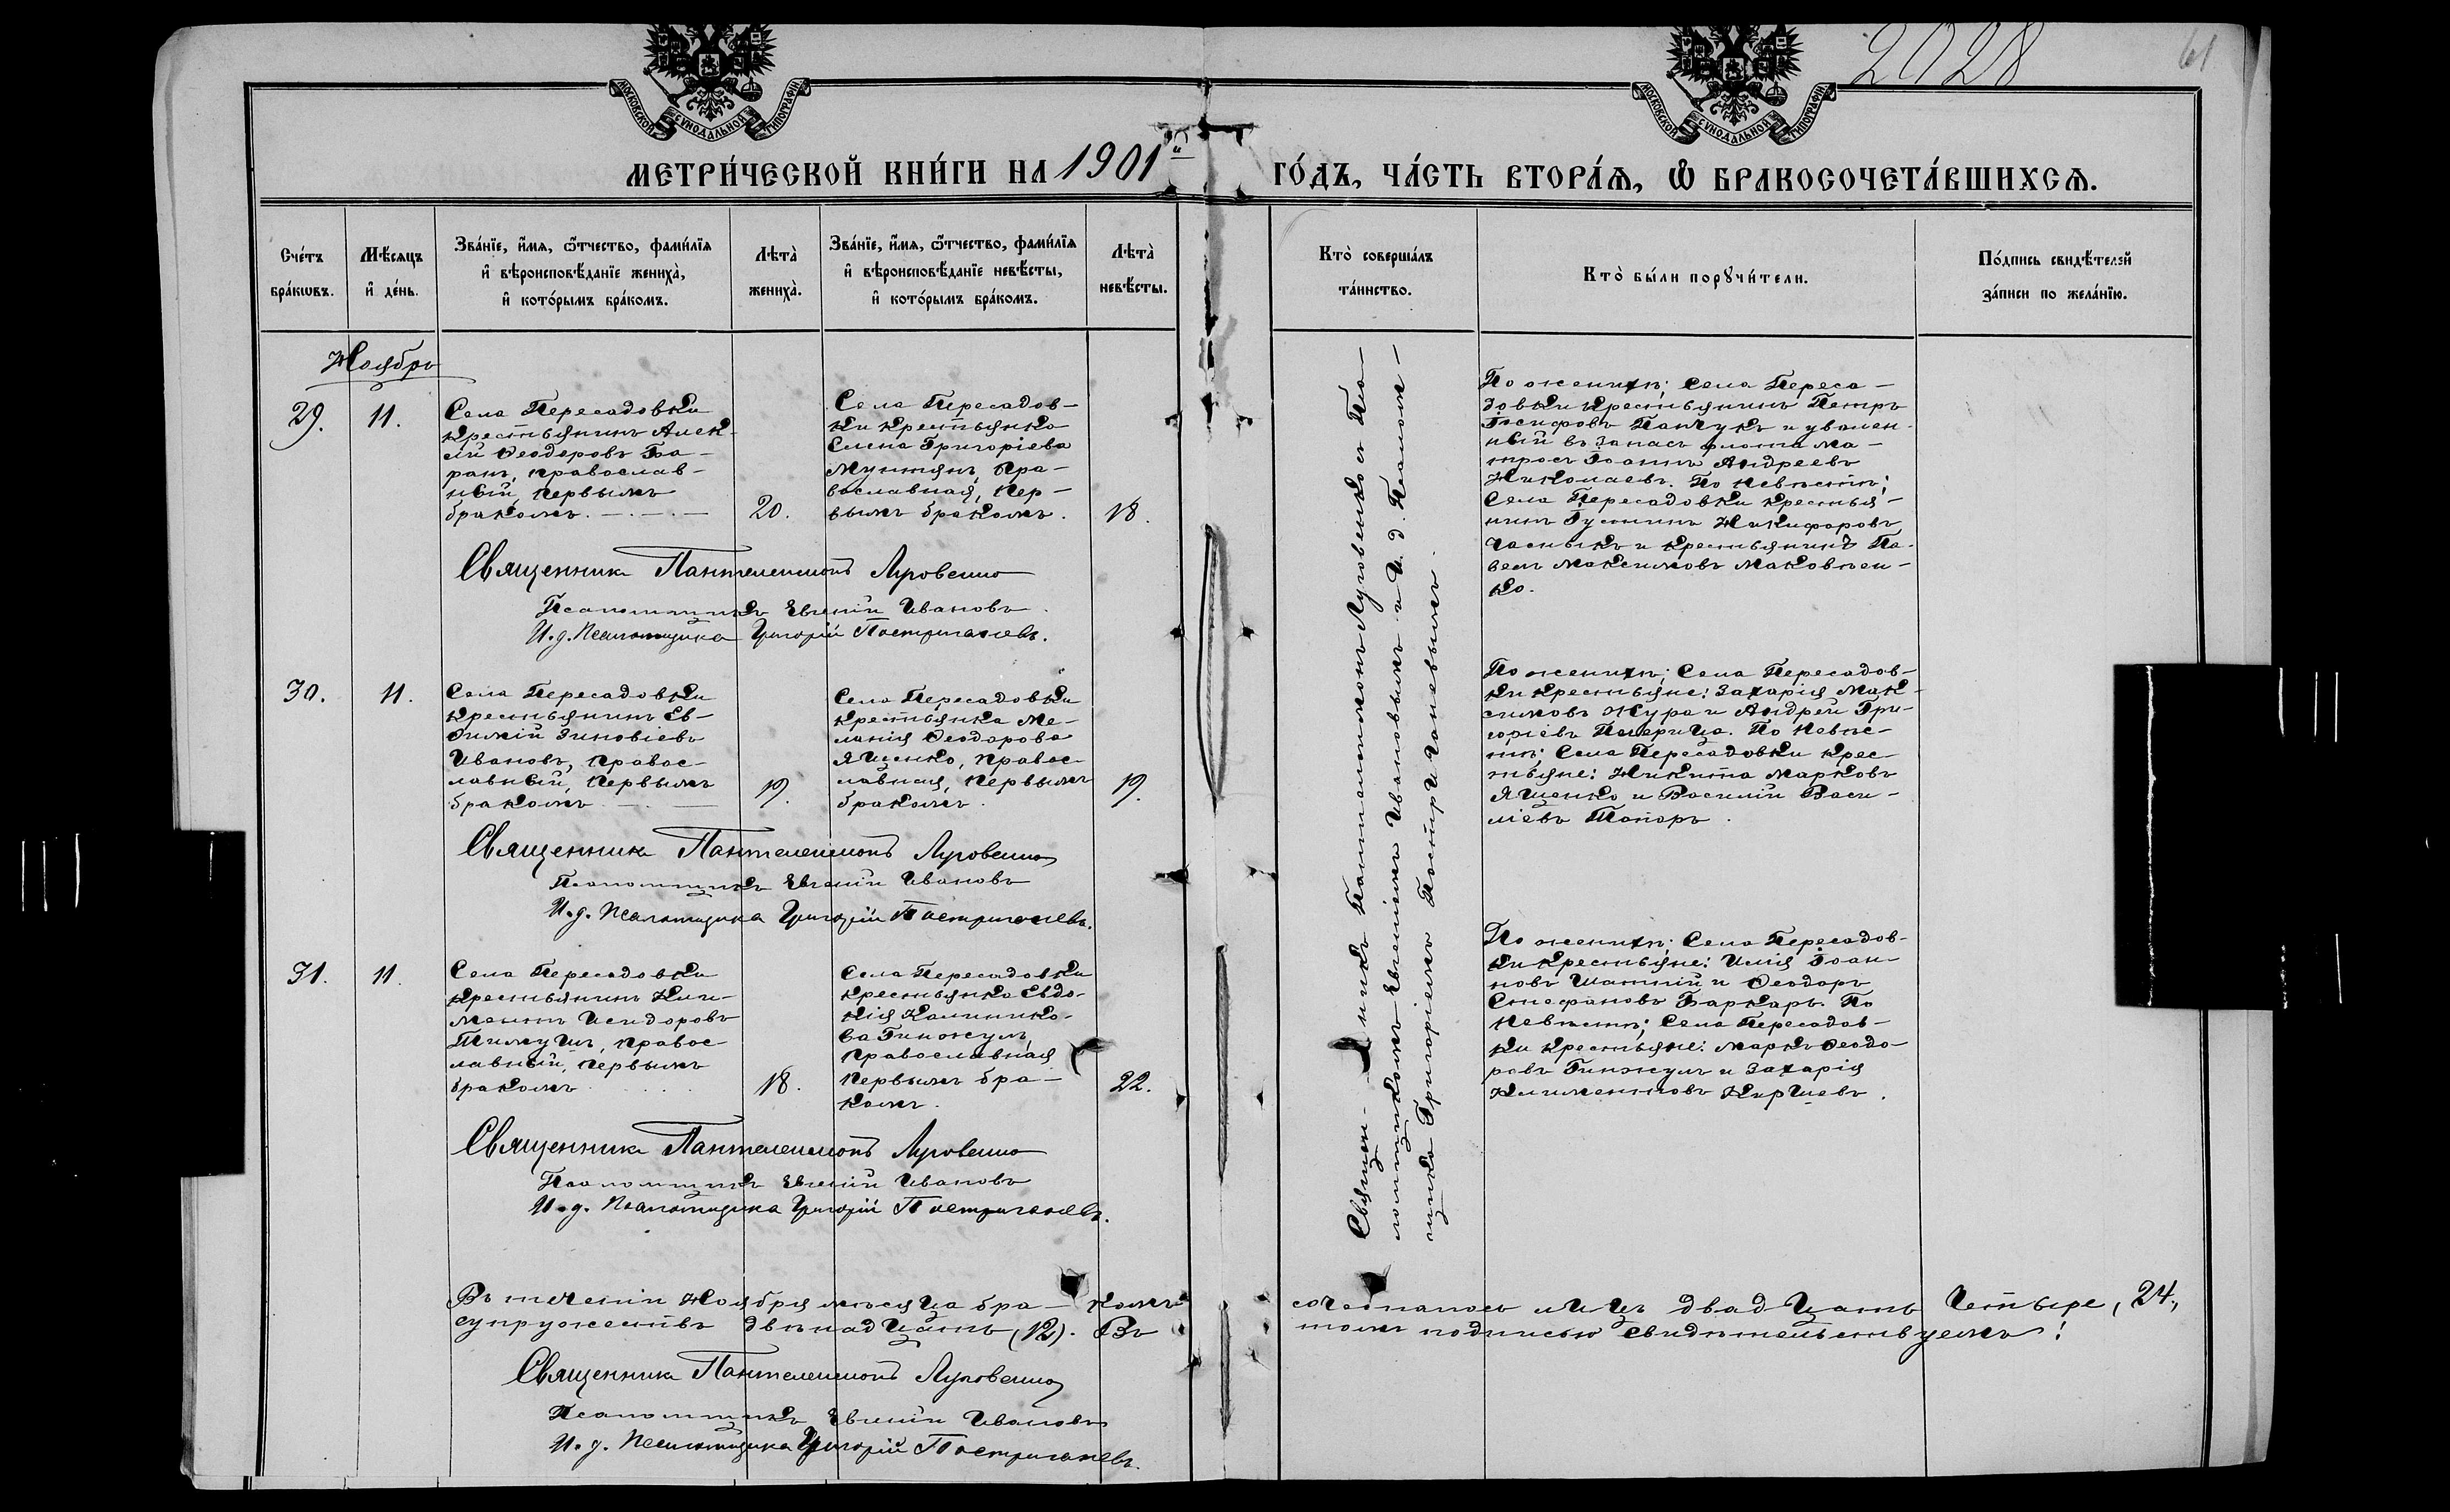 2028
61
МОСКОВСКОЙ СѴНОДАЛЬНОЙ ТИПОГРАФІИ
МОСКОВСКОЙ СѴНОДАЛЬНОЙ ТИПОГРАФІИ
МЕТРИ́ЧЕСКОЙ КНИ́ГИ НА 1901й ГО́ДЪ, ЧА́СТЬ ВТОРА́Ѧ, Ѡ҆ БРАКОСОЧЕТА́ВШИХСѦ.
Сче́тъ
бра́кѡвъ.
Мѣ́сѧцъ
и҆ де́нь.
Зва́нїе, и҆́мѧ, ѻ҆́тчество, фами́лїѧ
и҆ вѣроисповѣ́данїе жениха̀,
и҆ кото́рымъ бра́комъ.
Лѣта̀
жениха̀.
Зва́нїе, и҆́мѧ, ѻ҆́тчество, фами́лїѧ
и҆ вѣроисповѣ́данїе невѣ́сты,
и҆ кото́рымъ бра́комъ.
Лѣта̀
невѣ́сты.
Кто̀ соверша́лъ
та́инство.
Кто̀ бы́ли порꙋчи́тели.
По́дпись свидѣ́телей
за́писи по жела́нїю.
Ноябрь
29.
11.
Села Пересадовки
крестьянинъ Алек-
сій Ѳеодоровъ Ба-
ранъ, православ-
ный, первымъ
бракомъ.
20.
Села Пересадов-
ки крестьянка
Елена Григоріева
Мунтянъ, пра-
вославная, пер-
вымъ бракомъ.
18.
По женихѣ; Села Переса-
довки крестьянинъ Петръ
Іосифовъ Панчукъ и уволен-
ный въ запасъ флота ма-
тросъ Іоаннъ Андреевъ
Николаевъ. По невѣстѣ;
Села Пересадовки крестья-
нинъ Іустинъ Никифоровъ
Часныкъ и крестьянинъ Па-
велъ Максимовъ Маковѣен-
ко.
Священникъ Пантелеимонъ Луговенко
Псаломщикъ Евгеній Ивановъ
И.д. псаломщика Григорій Постригачевъ.
30.
11.
Села Пересадовки
крестьянинъ Ев-
ѳимій Зиновіевъ
Ивановъ, правос-
лавный, первымъ
бракомъ
19.
Села Пересадовки
крестьянка Ме-
ланія Ѳеодорова
Ященко, правос-
лавная, первымъ
бракомъ.
19.
По женихѣ; Села Пересадов-
ки крестьяне: Захарія Мак-
симовъ Жура и Андрей Гри-
горіевъ Пацерица. По невѣс-
тѣ; Села Пересадовки крес-
тьяне: Никита Марковъ
Ященко и Василій Васи-
ліевъ Топоръ.
Священникъ Пантелеимонъ Луговенко
Псаломщикъ Евгеній Ивановъ
И.д. псаломщика Григорій Постригачевъ.
31.
11.
Села Пересадовки
крестьянинъ Кли-
ментъ Исидоровъ
Тимушъ, правос-
лавный, первымъ
бракомъ
18.
Села Пересадовки
крестьянка Евдо-
кія Каллинико-
ва Гинжулъ,
православная
первымъ бра-
комъ.
22.
По женихѣ; Села Пересадов-
ки крестьяне: Илія Іоан-
новъ и Ѳеодоръ
Стефановъ Баркарь. По
невѣстѣ; Села Пересадов-
ки крестьяне: Маркъ Ѳеодо-
ровъ Гинжулъ и Захарія
Климентовъ Киршевъ.
Священникъ Пантелеимонъ Луговенко
Псаломщикъ Евгеній Ивановъ
И.д. псаломщика Григорій Постригачевъ.
Священ- никъ Пантелеимонъ Луговенко съ Пса-
ломщикомъ Евгеніемъ Ивановымъ и И.д. Псалом-
щика Григоріемъ Постригачевымъ.
Въ теченіи Ноября мѣсяца бра- комъ сочеталось лицъ двадцать четыре, 24,
супружествъ двѣнадцать (12). Въ томъ подписью свидѣтельствуемъ:
Священникъ Пантелеимонъ Луговенко
Псаломщикъ Евгеній Ивановъ
И.д. Псаломщика Григорій Постригачевъ.